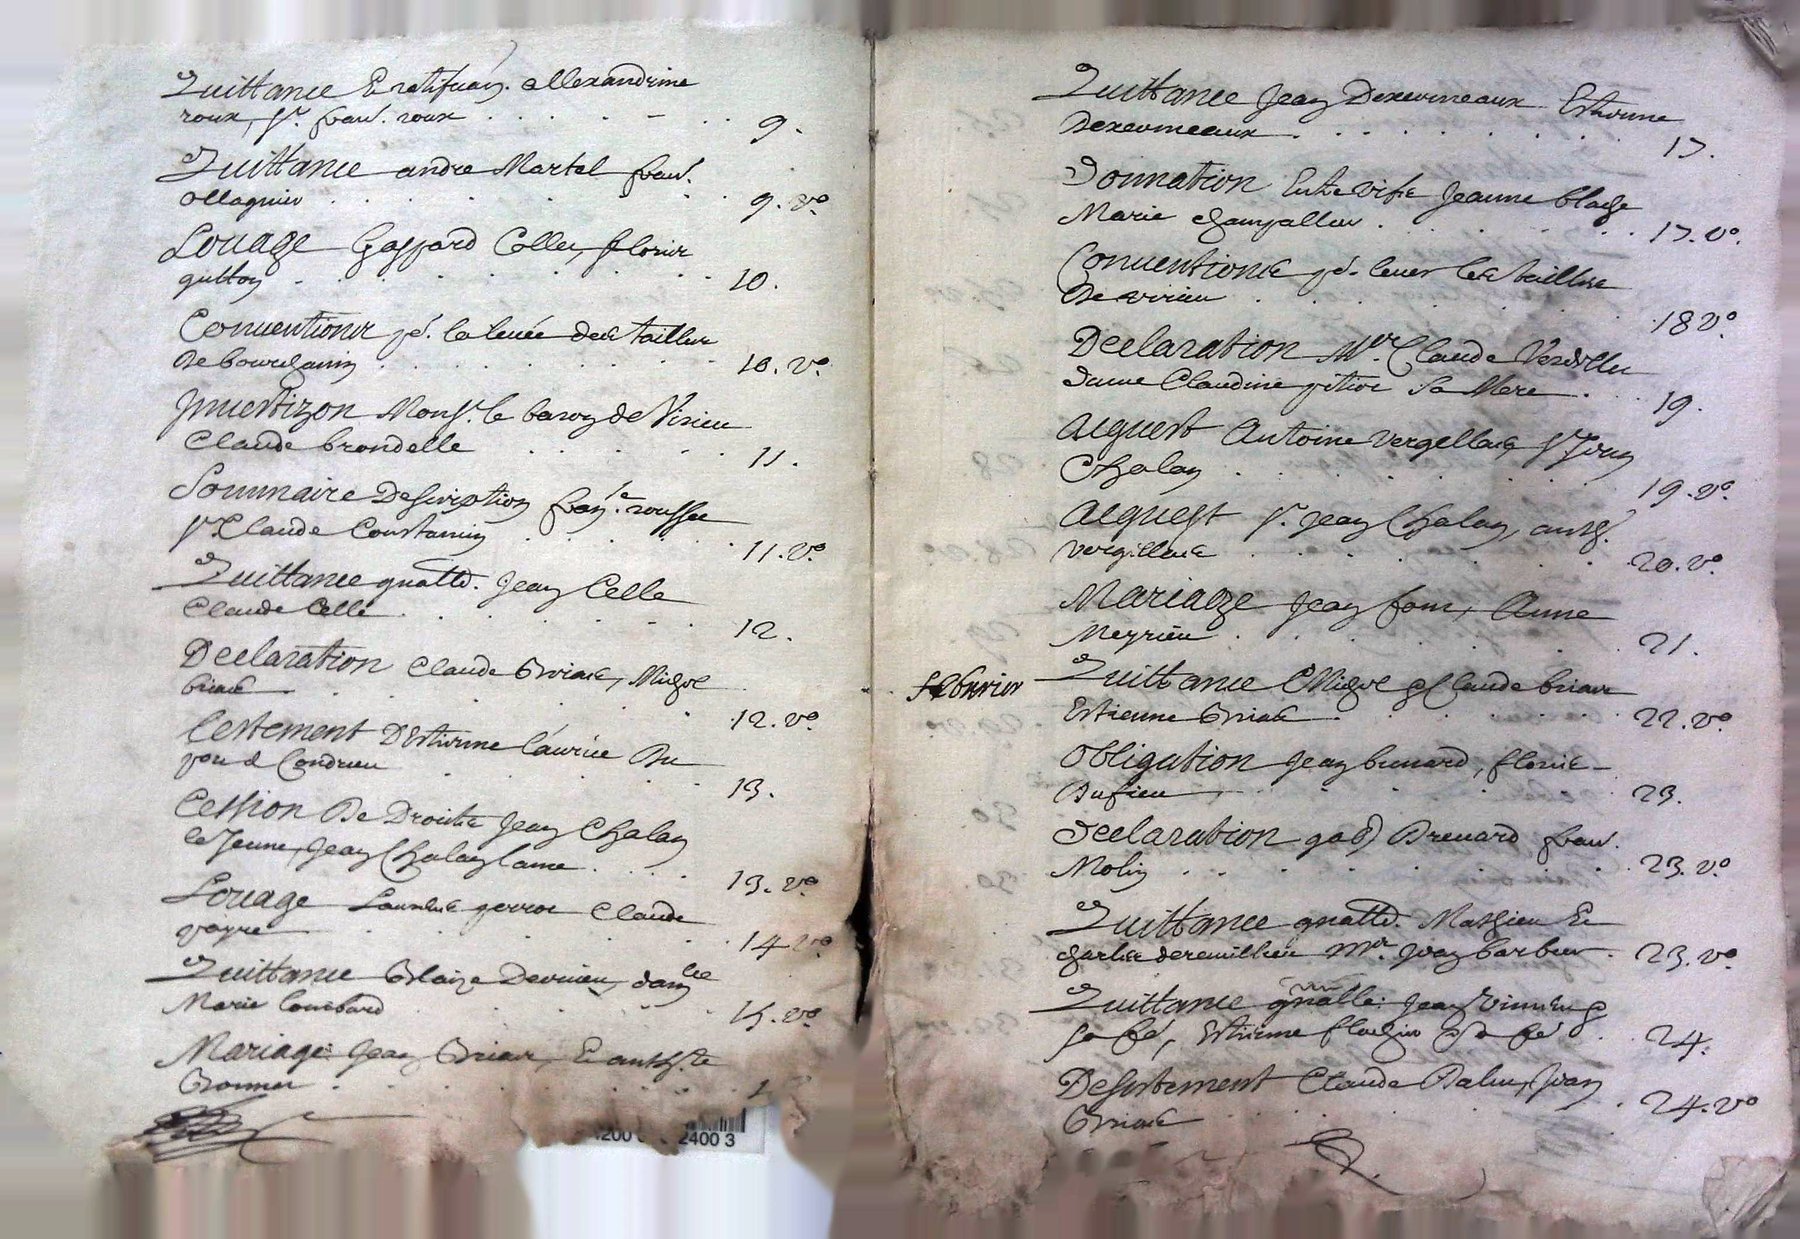 Quittance Eratifica͠n. Allexandrine
roux, Sr. fran͠s. roux . . . . . . 9.
Quittance andre Martel fran͠s.
ollagnier . . . . . . 9. vo.
Louage Gaspard Collet, florie
guitton . . . . . . 10.
Conuentions po͠. la leuée des tailles
De bourgargin . . . . . . 10. vo.
Inuestizon Monsr. le baron de Virieu
Claude brondelle . . . . . 11.
Sommaire Description
Sr. Claude Constantin . . . . . . 11. vo.
Quittance gnalle. Jean Celle
Claude Celle . . . . . . 12.
Declaration Claude Briais, Michel
briais . . . . . . 12. vo.
Testement D'Estienne
de Condrieu . . . . . . 13.
Cession De Droits Jean Chalay
le Jeune, Jean Chalay laine . . . . 13. vo.
Louage perrot Claude
voyre . . . . . . 14 vo.
Quittance Blaize Dervieu, dam͠lle
Marie lombard . . . . . . 15. vo.
Mariage Jean Briais, E
Bonnet . . . . . . 1
Quittance Jean Dexeumeaux Estienne
Dexeumeaux . . . . . . 17.
Donnation Entre vifs Jeanne blache
Marie Champallier . . . . . . 17. vo.
Conuentions po͠. leuer les tailles
De virieu . . . . . . 18 vo.
Declaration Mre. Claude Verdellet
dame Claudine pitiot Sa Mere . . . 19.
Acquest Antoine vergellas Sr. Jean
Chalay . . . . . . 19. vo.
Acquest Sr. Jean Chalay, anth͠e.
vergellas . . . . . . 20. vo.
Mariage Jean font, Anne
Meyrieu . . . . . . 21.
febvrier
Quittance Michel & Claude briais
Estienne Briais . . . . . . 22. vo.
Obligation Jean bunard, florie
Dufieu . . . . . . 23.
Declaration gab͠. Breuard fran͠s.
Molin . . . . . . 23. vo.
Quittance gnalle. Mathieu E
Charles dereuillieu Mre. Jean barbier . 23. vo.
Quittance gnalle. Jean
sa fe͠, Estienne flachier & sa fe͠ . . 24.
Desistement Claude Palue, Jean
Briais . . . . . . 24. vo
4200 2400 3